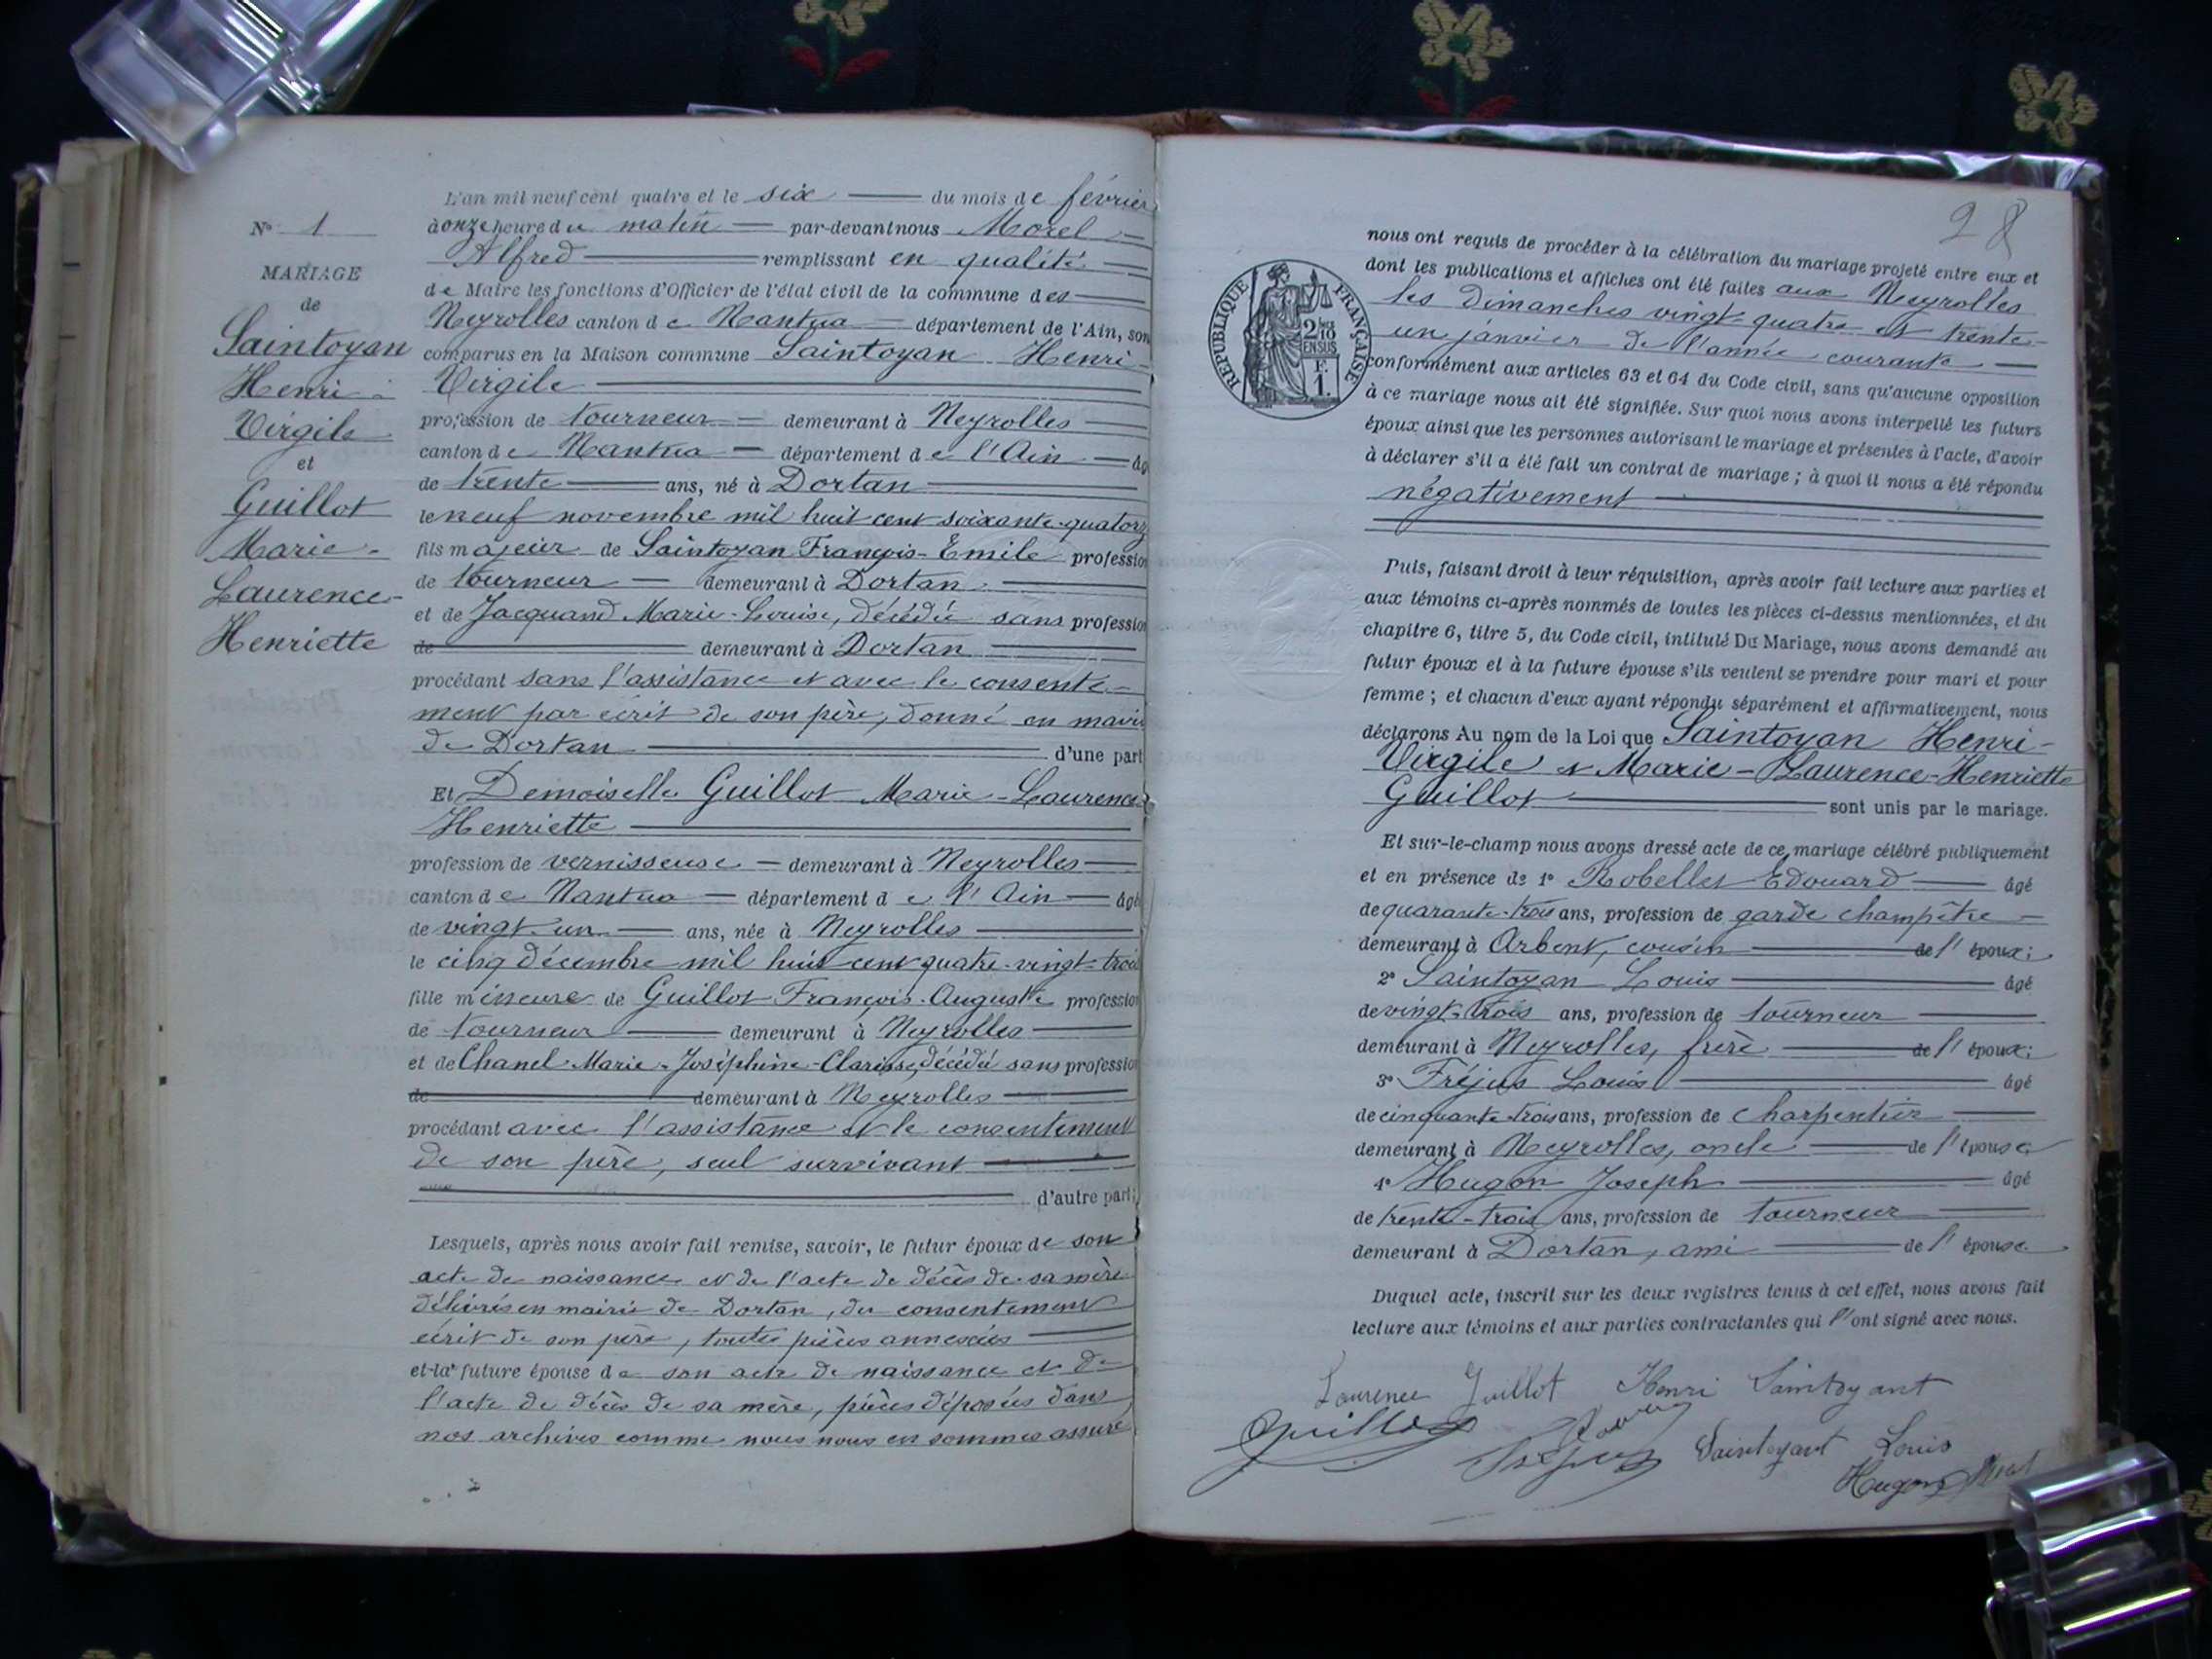 N° 1
MARIAGE
de
Saintoyan
Henri
Virgile
et
Guillot
Marie-
Laurence-
Henriette
L'an mil neuf cent quatre et le six du mois de février
à onze heure du matin par-devant nous Morel
Alfred remplissant en qualité
de Maire les fonctions d'Officier de l'état civil de la commune des
Neyrolles canton de Nantua département de l'Ain, son
comparus en la Maison commune Saintoyan Henri-
Virgile
profession de tourneur demeurant à Neyrolles
canton de Nantua département de l'Ain âg
de trente ans, né à Dortan
le neuf novembre mil huit cent soixante-quatorz
fils majeur de Saintoyan François-Emile profession
de tourneur demeurant à Dortan
et de Jacquand Marie-Louise, décédée sans profession
de demeurant à Dortan
procédant sans l'assistance et avec le consente-
ment par écrit de son père, donné en mairie
de Dortan d'une part
Et Demoiselle Guillot Marie-Laurence
Henriette
profession de vernisseuse demeurant à Neyrolles
canton de Nantua département de l'Ain âgé
de vingt-un ans, née à Neyrolles
le cinq décembre mil huit cent quatre-vingt-trois
fille mineure de Guillot François-Auguste profession
de tourneur demeurant à Neyrolles
et de Chanel Marie-Joséphine-Clarisse, décédée sans profession
de demeurant à Neyrolles
procédant avec l'assistance et le consentement
de son père, seul survivant
d'autre part;
Lesquels, après nous avoir fait remise, savoir, le futur époux de son
acte de naissance et de l'acte de décès de sa mère
délivrés en mairie de Dortan, du consentement
écrit de son père, toutes pièces annexées
et la future épouse de son acte de naissance et de
l'acte de décès de sa mère, pièces déposées dans
nos archives comme nous nous en sommes assuré
28
RÉPUBLIQUE FRANÇAISE
2/10
EN SUS
F.
1.
nous ont requis de procéder à la célébration du mariage projeté entre eux et
dont les publications et affiches ont été faites aux Neyrolles
les dimanches vingt-quatre et trente-
un janvier de l'année courante
conformément aux articles 63 et 64 du Code civil, sans qu'aucune opposition
à ce mariage nous ait été signifiée. Sur quoi nous avons interpellé les futurs
époux ainsi que les personnes autorisant le mariage et présentes à l'acte, d'avoir
à déclarer s'il a été fait un contrat de mariage ; à quoi il nous a été répondu
négativement
Puis, faisant droit à leur réquisition, après avoir fait lecture aux parties et
aux témoins ci-après nommés de toutes les pièces ci-dessus mentionnées, et du
chapitre 6, titre 5, du Code civil, intitulé Du Mariage, nous avons demandé au
futur époux et à la future épouse s'ils veulent se prendre pour mari et pour
femme ; et chacun d'eux ayant répondu séparément et affirmativement, nous
déclarons Au nom de la Loi que Saintoyan Henri-
Virgile et Marie-Laurence-Henriette
Guillot sont unis par le mariage.
Et sur-le-champ nous avons dressé acte de ce mariage célébré publiquement
et en présence de 1° Robellet Edouard âgé
de quarante-trois ans, profession de garde champêtre
demeurant à Arbent, cousin de l'époux;
2° Saintoyan Louis âgé
de vingt-trois ans, profession de tourneur
demeurant à Neyrolles, frère de l'époux;
3° Fréjus Louis âgé
de cinquante-trois ans, profession de charpentier
demeurant à Neyrolles, oncle de l'épouse
4° Hugon Joseph âgé
de trente-trois ans, profession de tourneur
demeurant à Dortan, ami de l'épouse
Duquel acte, inscrit sur les deux registres tenus à cet effet, nous avons fait
lecture aux témoins et aux parties contractantes qui l'ont signé avec nous.
Laurence Guillot Henri Saintoyant
Guillot
Fréjus Saintoyant Louis
Hugon